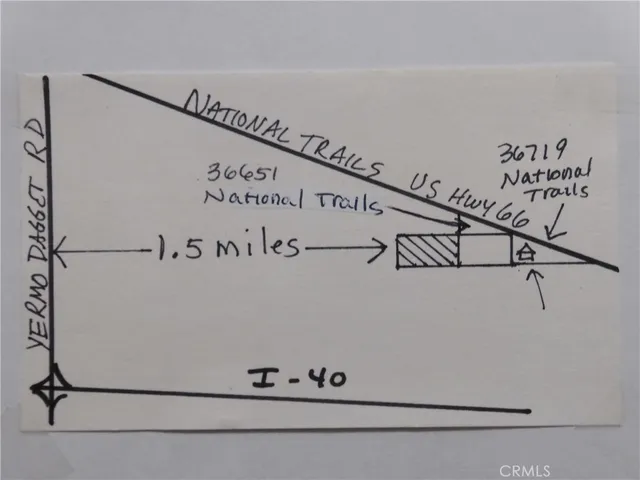 NATIONAL TRAILS US HWY 66
36719
National
Trails
36651
National Trails
YERMO DAGGET RD
1.5 miles
I-40
CRMLS